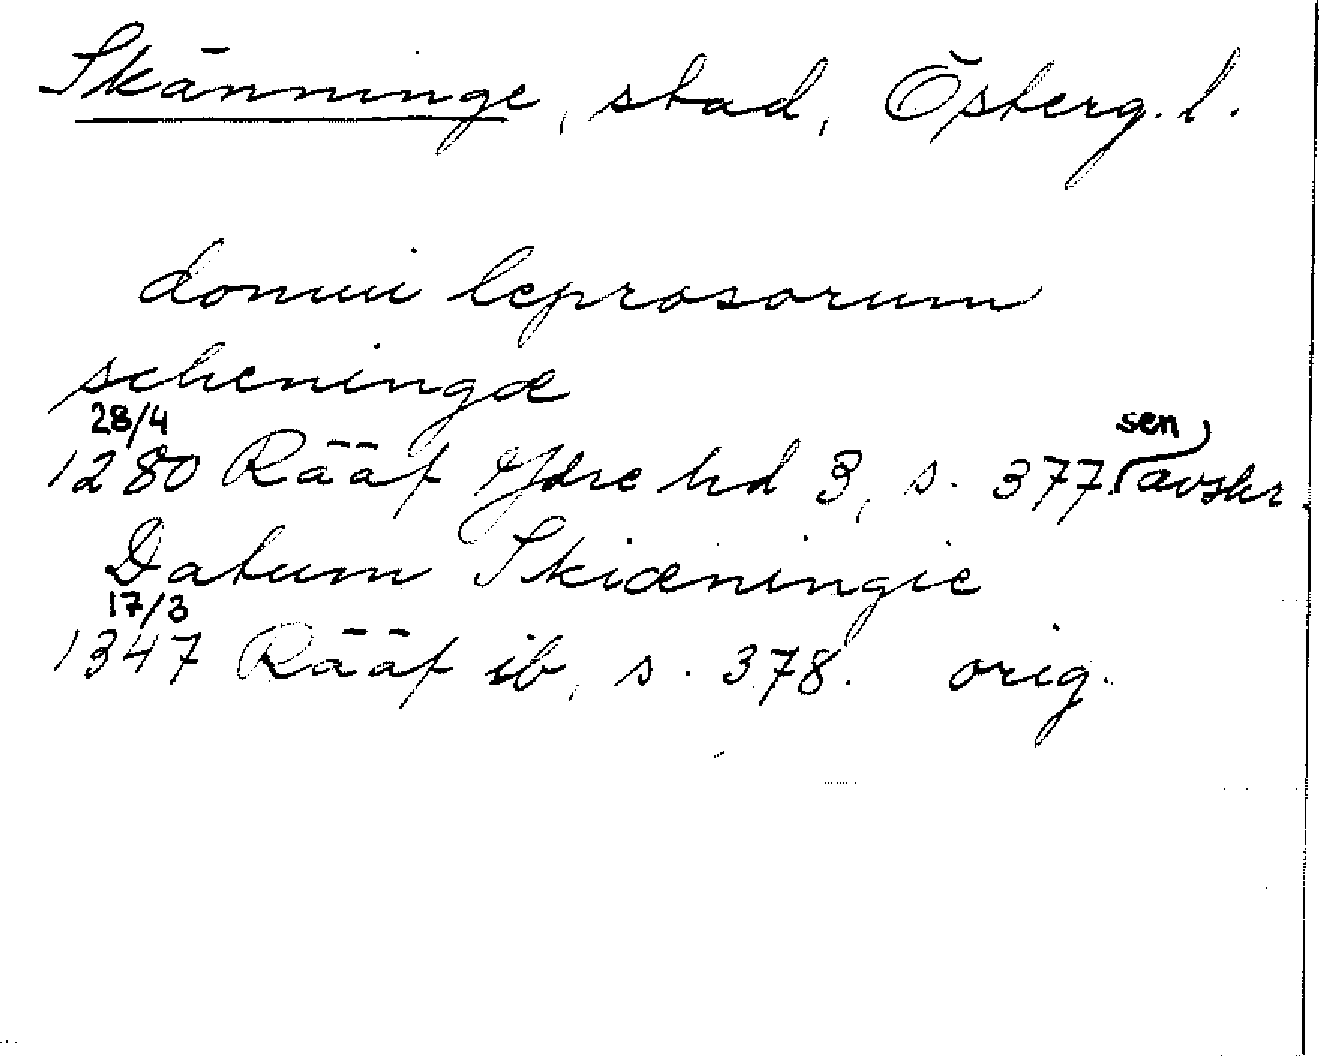 Skänninge, stad, Österg. l.
domui leprosorum
scheningæ
28/4
1280 Rääf Ydre hd 3, s. 377. sen avskr
Datum Skiæningie
17/3
1347 Rääf ib, s. 378. orig.